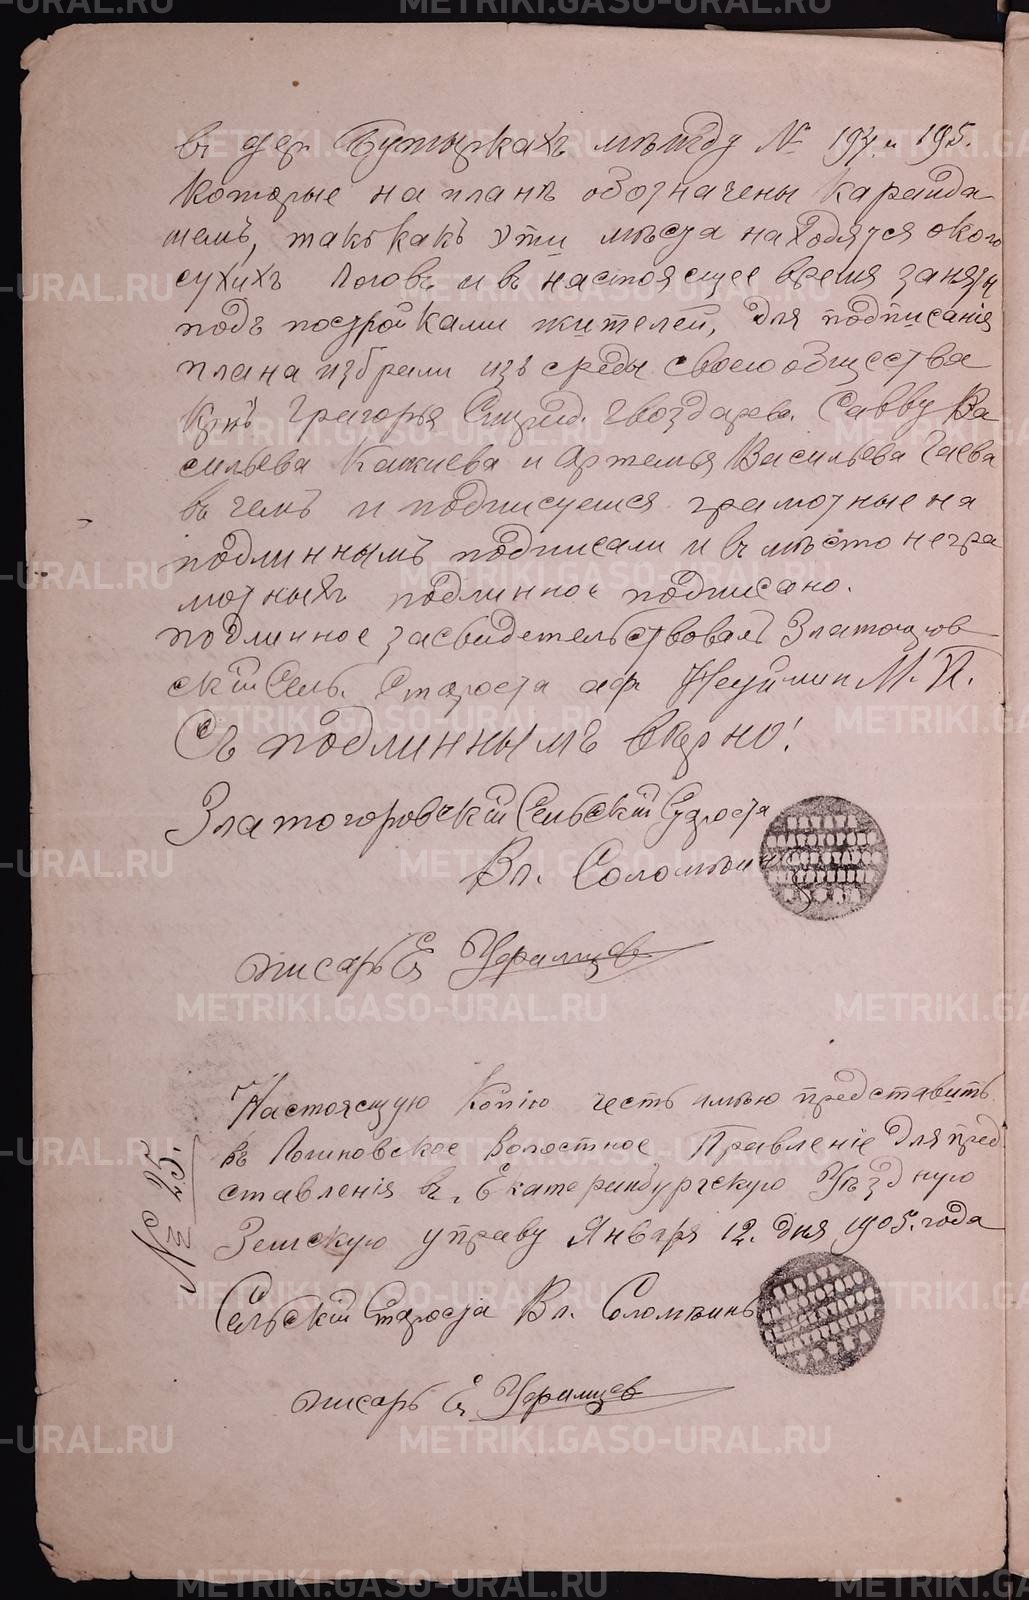 въ дер. Бутыркахъ между № 194 и 195.
Которые на планѣ обозначены каранда
шемъ, такъ какъ эти мѣста находятся около
сухихъ логовъ и въ настоящее время заняты
подъ постройками жителей, для подписанія
плана избрали изъ среды своего общества
Кр-нъ Григорья Спирид. Гвоздарева. Савву Ва
сильева Какшева и Артемья Васильева Гаева
въ чемъ и подписуемся грамотные на
подлинномъ подписали и вмѣсто негра
мотныхъ подлинное подписано.
подлинное засвидетельствовалъ Златогоров
скій Сель. Староста М. П.
Съ подлиннымъ вѣрно!
Златогоровскій Сельскій Староста
Вл. Соломеинъ
писарь Уфимцев
Настоящую Копію честь имѣю представить
въ Логиновское Волостное Правленіе для пред
ставленія въ Екатеринбургскую Уѣздную
Земскую управу Января 12. дня 1905. года
№ 3
Сельскій Староста Вл. Соломеинъ
писарь Уфимцев
METRIKI.GASO-URAL.RU